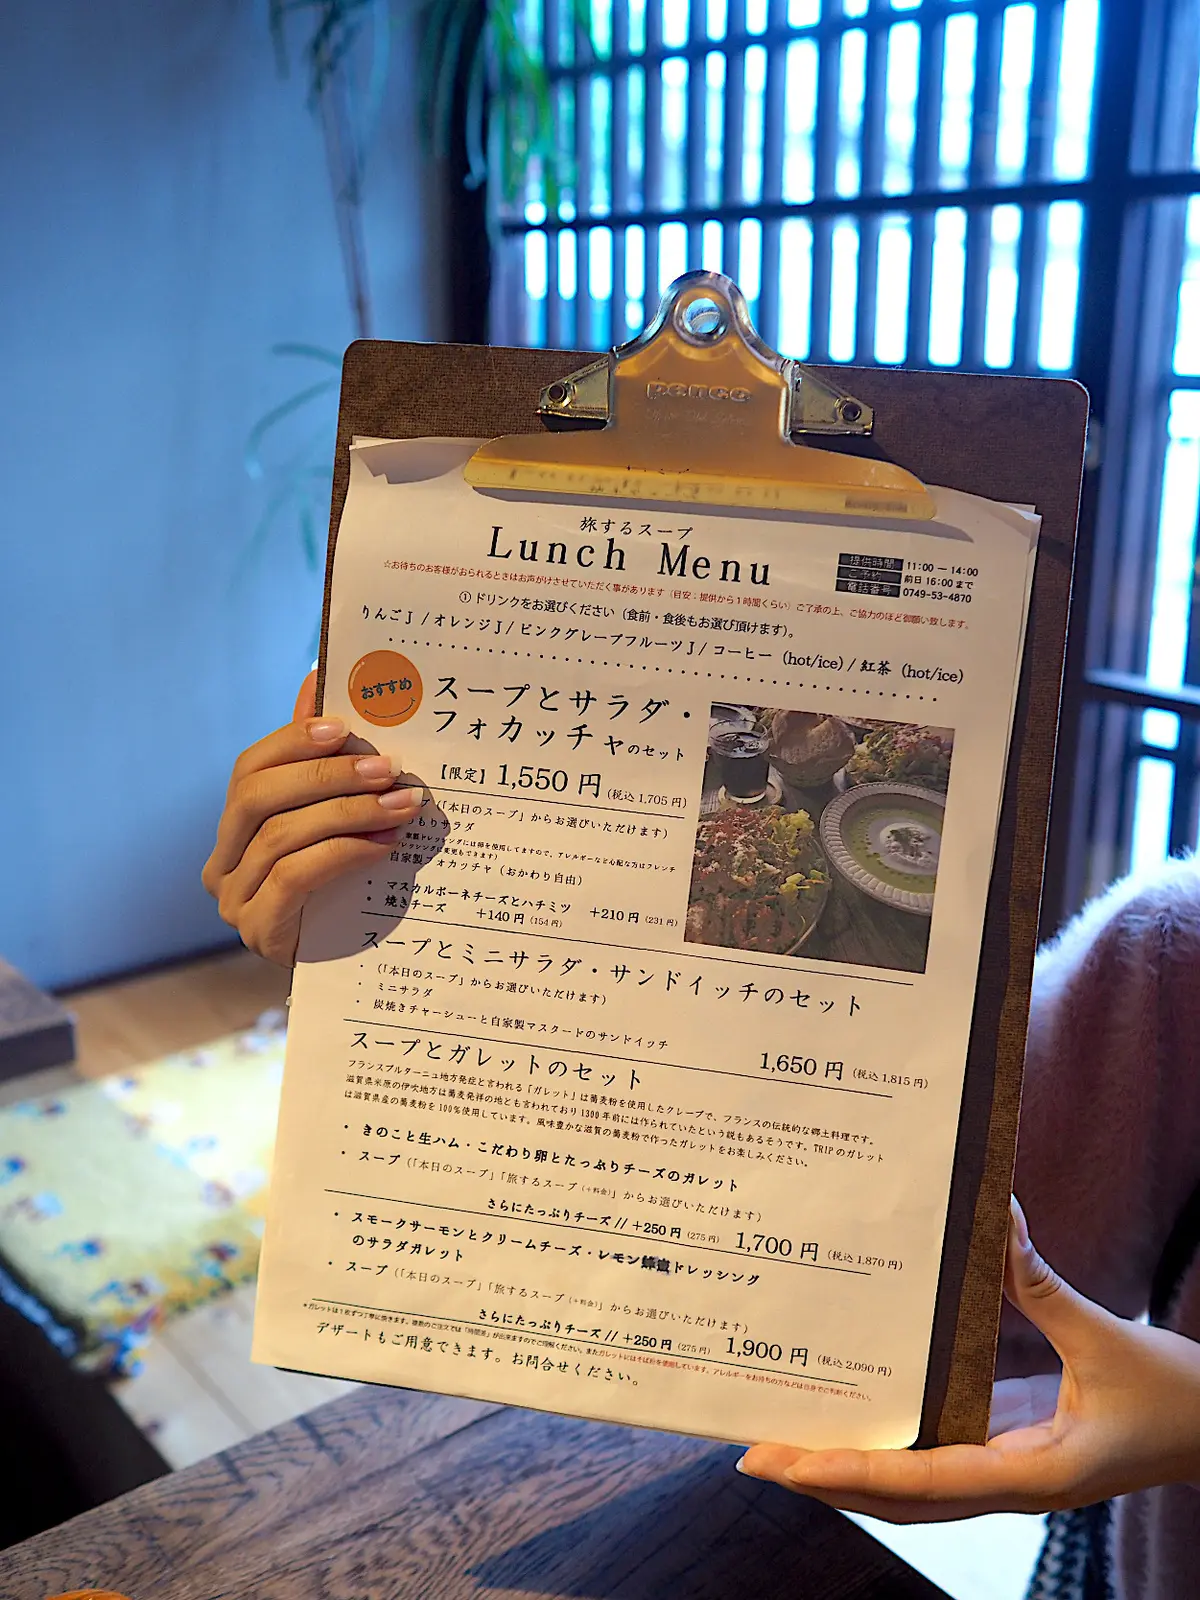 penco
旅するスープ
Lunch Menu
提供時間 11:00 — 14:00
ご予約 前日 16:00 まで
電話番号 0749-53-4870
☆お待ちのお客様がおられるときはお声がけさせていただく事があります（目安：提供から1時間くらい）ご了承の上、ご協力のほど御願い致します。
① ドリンクをお選びください（食前・食後もお選び頂けます）。
りんごJ / オレンジJ / ピンクグレープフルーツJ / コーヒー (hot/ice) / 紅茶 (hot/ice)
おすすめ
スープとサラダ・
フォカッチャのセット
【限定】1,550 円 (税込 1,705 円)
プ（「本日のスープ」からお選びいただけます）
もりサラダ
家製ドレッシングには卵を使用してますので、アレルギーなど心配な方はフレンチ
ドレッシングに変更もできます）
自家製フォカッチャ（おかわり自由）
・ マスカルポーネチーズとハチミツ +210 円 (231 円)
・ 焼きチーズ +140 円 (154 円)
スープとミニサラダ・サンドイッチのセット
・ （「本日のスープ」からお選びいただけます）
・ ミニサラダ
・ 炭焼きチャーシューと自家製マスタードのサンドイッチ
1,650 円 (税込 1,815 円)
スープとガレットのセット
フランスブルターニュ地方発症と言われる「ガレット」は蕎麦粉を使用したクレープで、フランスの伝統的な郷土料理です。
滋賀県米原の伊吹地方は蕎麦発祥の地とも言われており 1300 年前には作られていたという説もあるそうです。TRIP のガレット
は滋賀県産の蕎麦粉を 100％使用しています。風味豊かな滋賀の蕎麦粉で作ったガレットをお楽しみください。
・ きのこと生ハム・こだわり卵とたっぷりチーズのガレット
・ スープ（「本日のスープ」「旅するスープ（+料金）」からお選びいただけます）
さらにたっぷりチーズ // +250 円 (275 円) 1,700 円 (税込 1,870 円)
・ スモークサーモンとクリームチーズ・レモン蜂蜜ドレッシング
のサラダガレット
・ スープ（「本日のスープ」「旅するスープ（+料金）」からお選びいただけます）
さらにたっぷりチーズ // +250 円 (275 円) 1,900 円 (税込 2,090 円)
*ガレットは1枚ずつ丁寧に焼きます。複数のご注文では「時間差」が出来ますのでご理解ください。またガレットにはそば粉を使用しています。アレルギーをお持ちの方などは自身でご判断ください。
デザートもご用意できます。お問合せください。